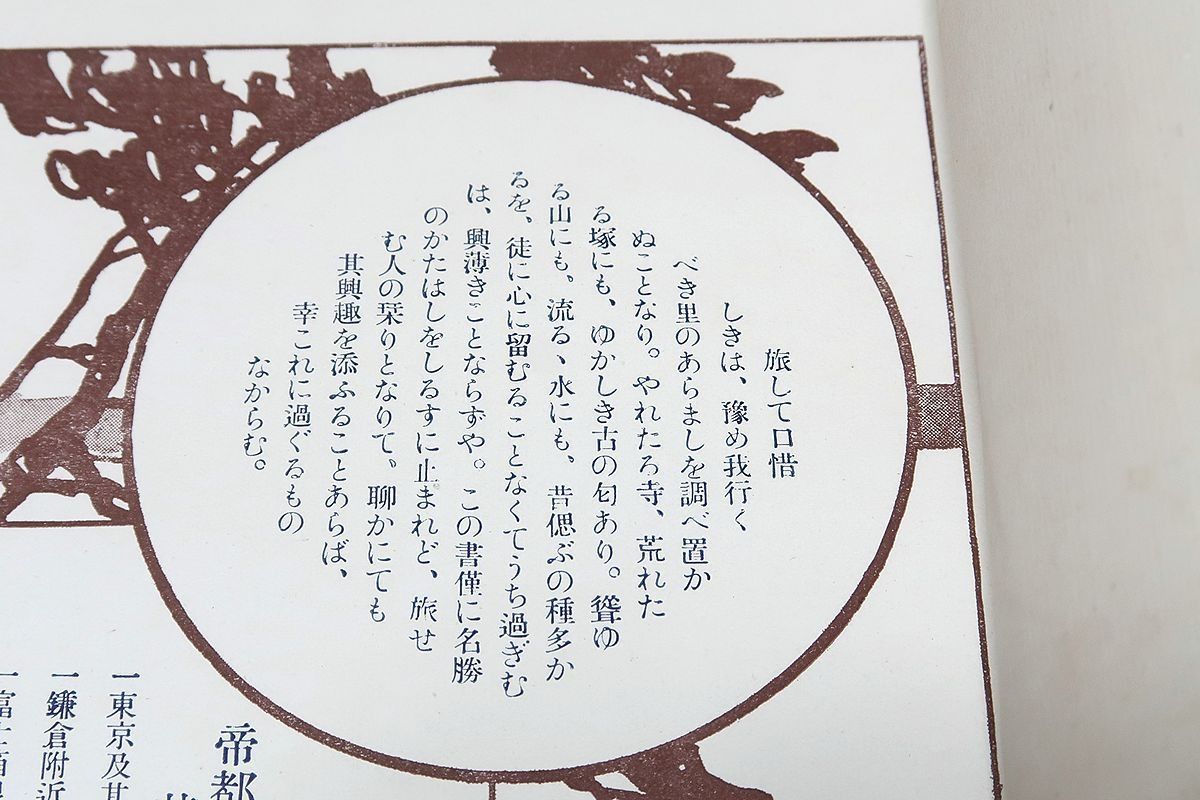 旅して口惜
しきは、豫め我行く
べき里のあらましを調べ置か
ぬことなり。やれたる寺、荒れた
る塚にも、ゆかしき古の匂あり。聳ゆ
る山にも、流るゝ水にも、昔偲ぶの種多か
るを、徒に心に留むることなくてうち過ぎむ
は、興薄きことならずや。この書僅に名勝
のかたはしをしるすに止まれど、旅せ
む人の栞りとなりて、聊かにても
其興趣を添ふることあらば、
幸これに過ぐるもの
なからむ。
帝都
一東京及其
一鎌倉附近
一富士箱根